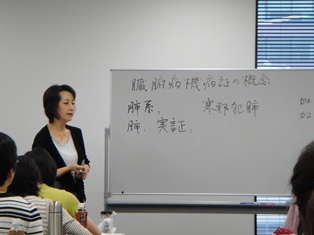 臓腑病機病証の概念
肺系. 寒邪犯肺
肺. 実証.